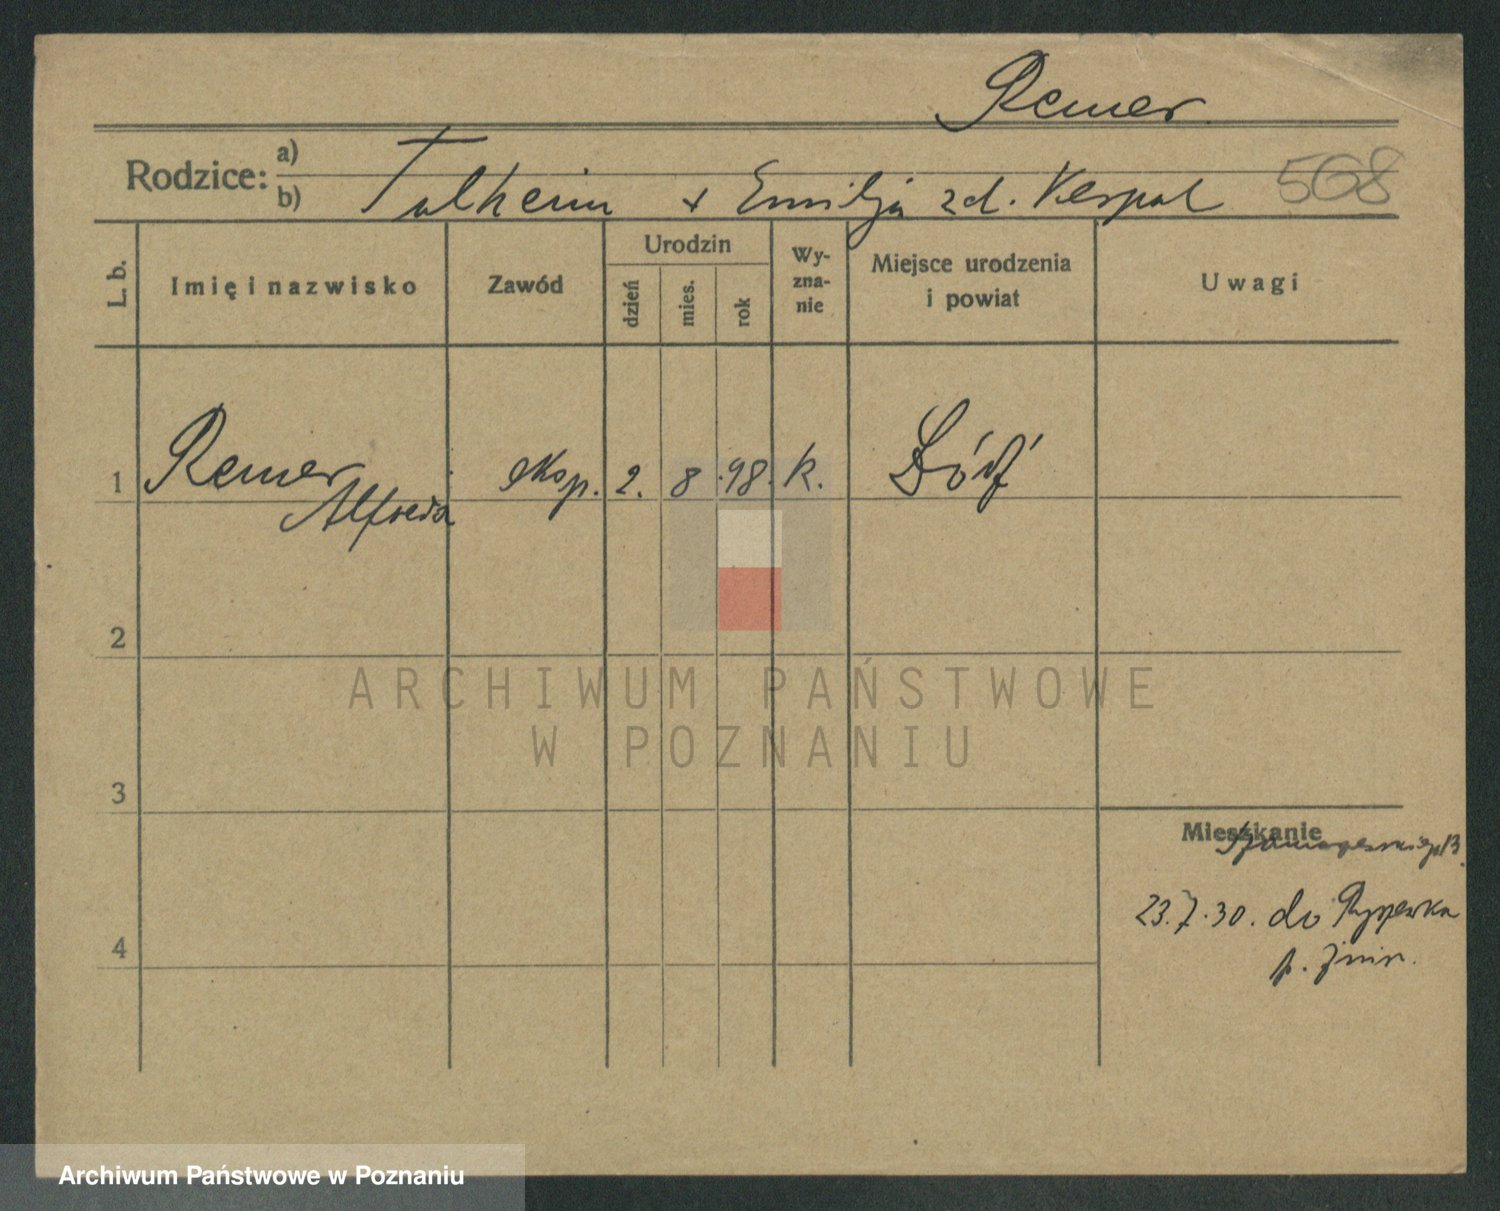 Remer
Rodzice: a)
b) Talheim + Emilja zd. Kerpal
568
L. b.
Imię i nazwisko
Zawód
Urodzin
dzień
mies.
rok
Wy-
zna-
nie
Miejsce urodzenia
i powiat
Uwagi
1 Remer eksp. 2. 8 .98. k. Łódź
Alfreda
2
ARCHIWUM PAŃSTWOWE
W POZNANIU
3
Mieszkanie
23.7.30. do
4
p. Żnin.
Archiwum Państwowe w Poznaniu